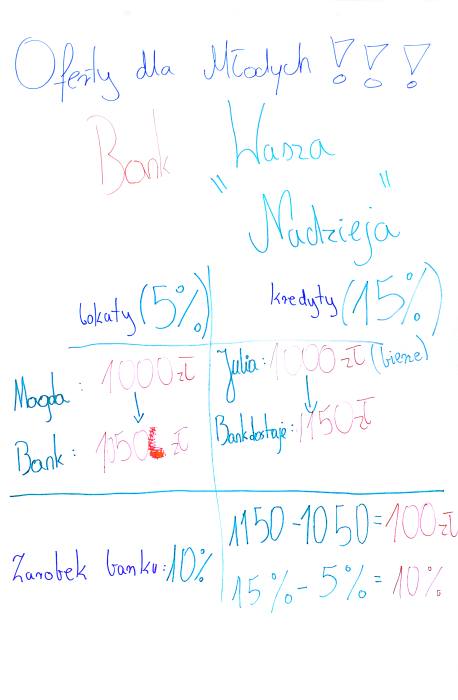 Oferty dla Młodych !!!
Bank "Wasza
Nadzieja"
lokaty (5%)
kredyty (15%)
Magda: 1000 zł
↓
Bank: 1050 zł
Julia: 1000 zł (bierze)
↓
Bank dostaje: 1150 zł
Zarobek banku: 10%
1150 - 1050 = 100 zł
15% - 5% = 10%